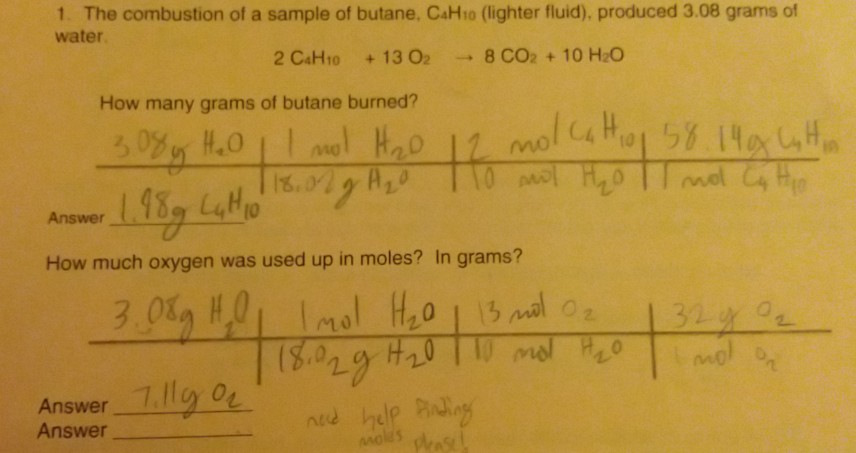 1. The combustion of a sample of butane, C₄H₁₀ (lighter fluid), produced 3.08 grams of
water.
2 C₄H₁₀ + 13 O₂ → 8 CO₂ + 10 H₂O
How many grams of butane burned?
3.08g H₂O | 1 mol H₂O | 2 mol C₄H₁₀ | 58.14g C₄H₁₀
18.02g H₂O | 10 mol H₂O | 1 mol C₄H₁₀
Answer 1.98g C₄H₁₀
How much oxygen was used up in moles? In grams?
3.08g H₂O | 1 mol H₂O | 13 mol O₂ | 32g O₂
18.02g H₂O | 10 mol H₂O | 1 mol O₂
Answer 7.11g O₂
Answer
need help finding
moles please!